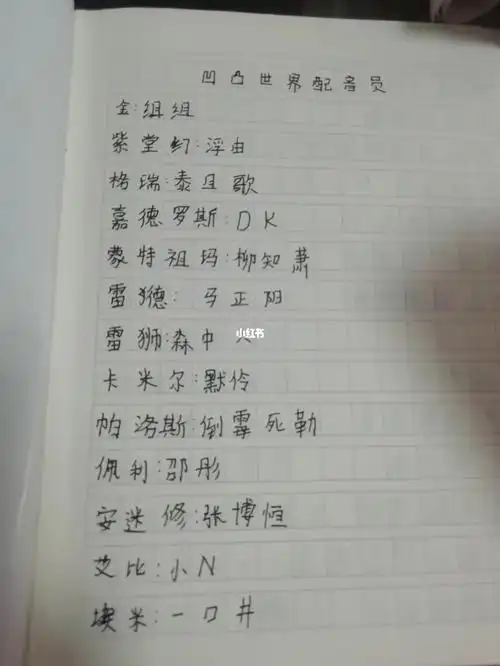 凹凸世界配音员
金:组组
紫堂幻:浮由
格瑞:泰且歌
嘉德罗斯:DK
蒙特祖玛:柳知萧
雷獅: 马正阳
雷狮:森中人
小红书
卡米尔:默伶
帕洛斯:倒霉死勒
佩利:邵彤
安迷修:张博恒
艾比:小N
埃米:一口井